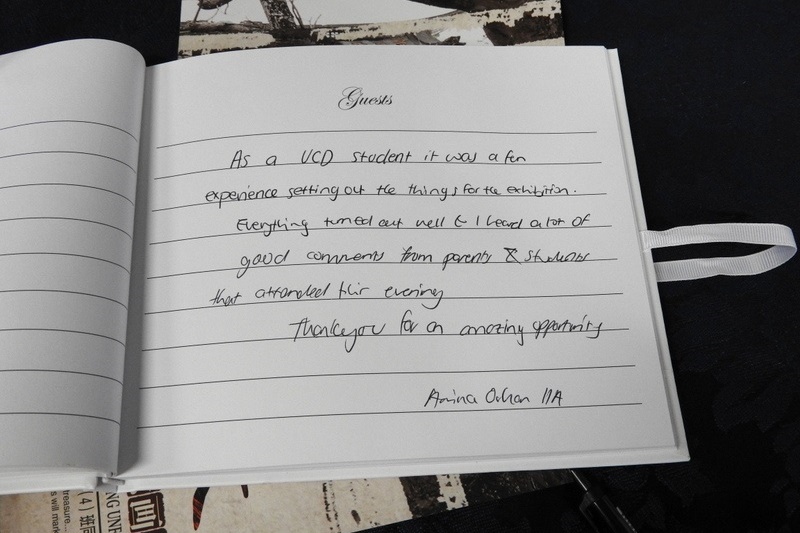 Guests
As a VCD student it was a fun
experience setting out the things for the exhibition.
Everything turned out well & I heard a lot of
good comments from parents & students
that attended this evening
Thankyou for an amazing opportunity
Amina 11A
treasure...
s will mark
(4) 班同
NG UNF